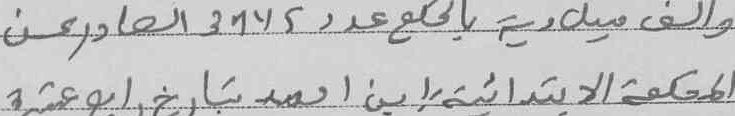 وألف ميلادية بالحكم عدد 3745 الصادر عن
المحكمة الابتدائية بابن احمد بتاريخ رابع عشر